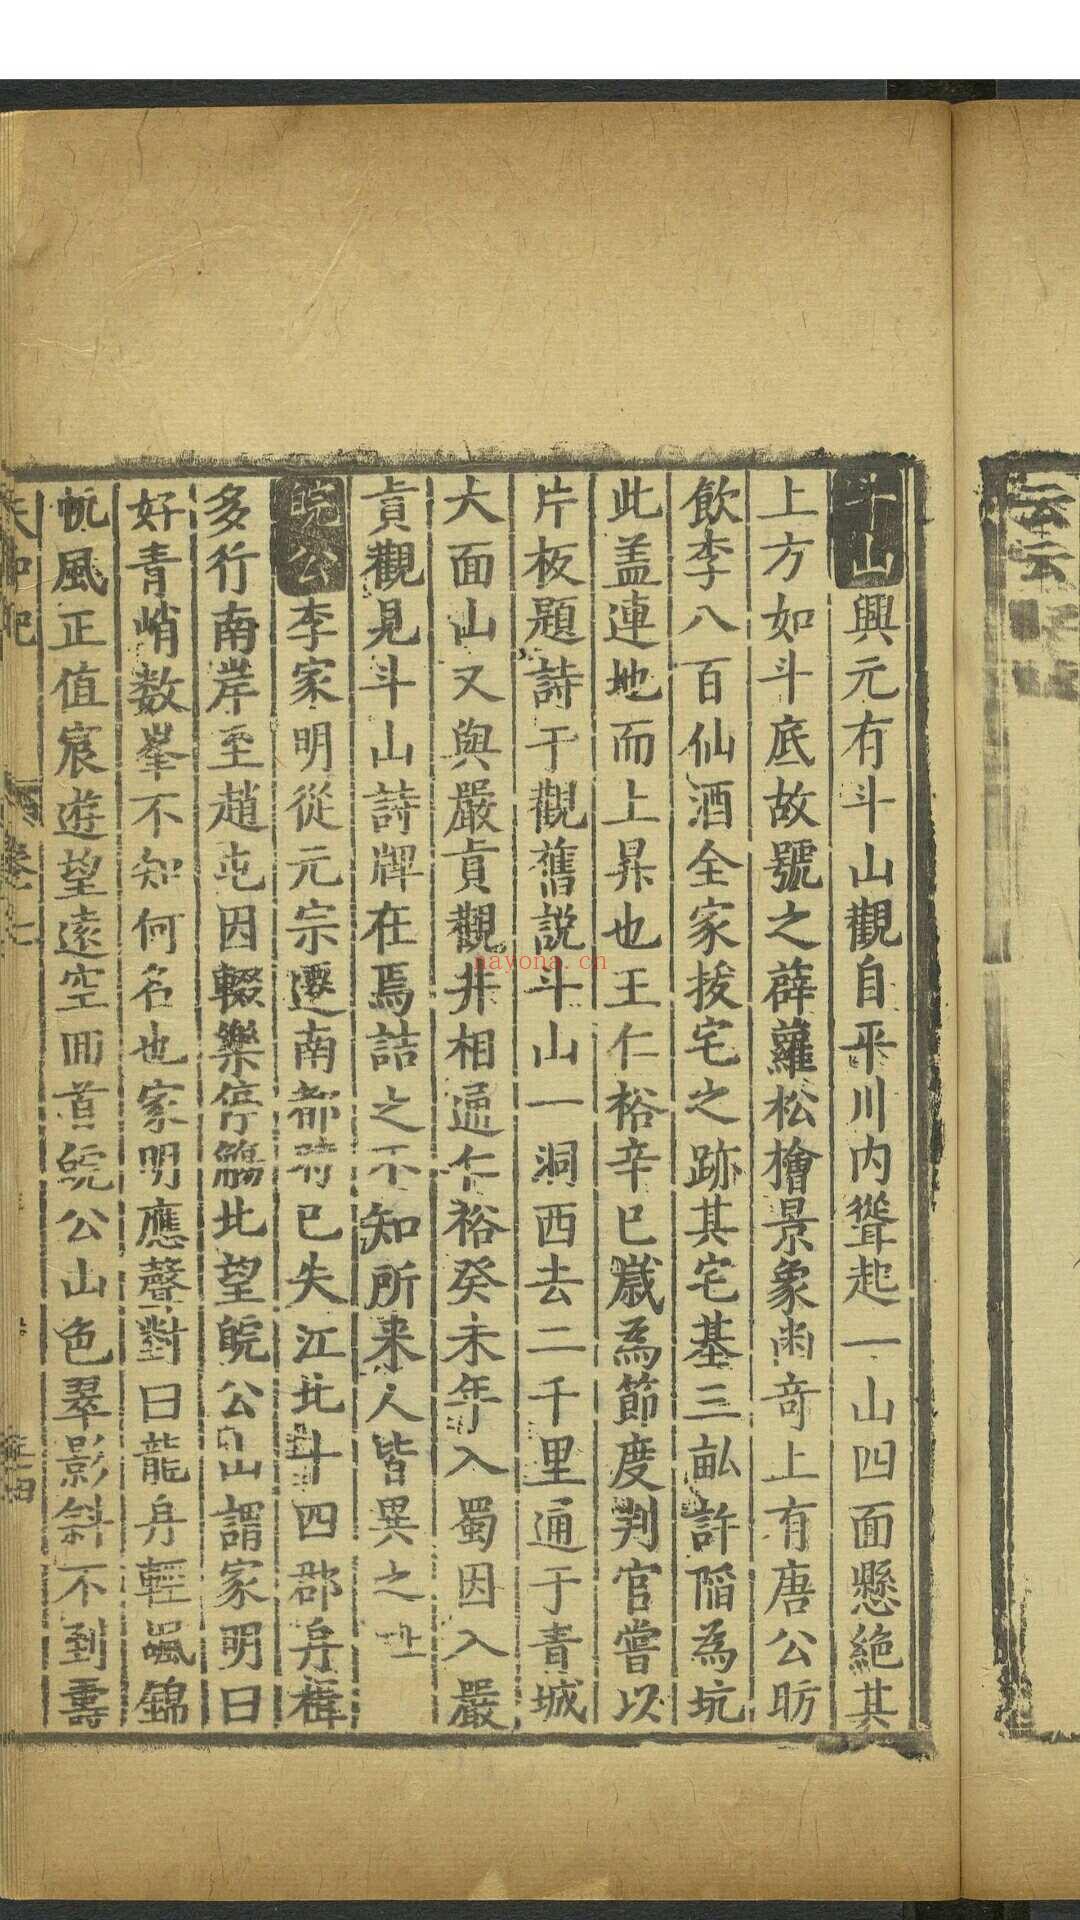 云云
斗山興元有斗山觀自平川内聳起一山四面懸絶其
上方如斗底故號之薜蘿松檜景象尚竒上有唐公昉
飲李八百仙酒全家拔宅之跡其宅基三畝許陷為坑
此盖連地而上昇也王仁裕辛巳歲為節度判官嘗以
片板題詩于觀舊說斗山一洞西去二千里通于青城
大面山又與嚴貞觀井相通仁裕癸未年入蜀因入嚴
貞觀見斗山詩牌在焉詰之不知所来人皆異之
皖公李家明從元宗遷南都時已失江北十四郡舟楫
多行南岸至趙屯因輟樂停觴北望皖公山謂家明曰
好青峭数峯不知何名也家明應聲對曰龍舟輕颿錦
帆風正值宸遊望遠空回首皖公山色翠影斜不到壽
nayona.cn